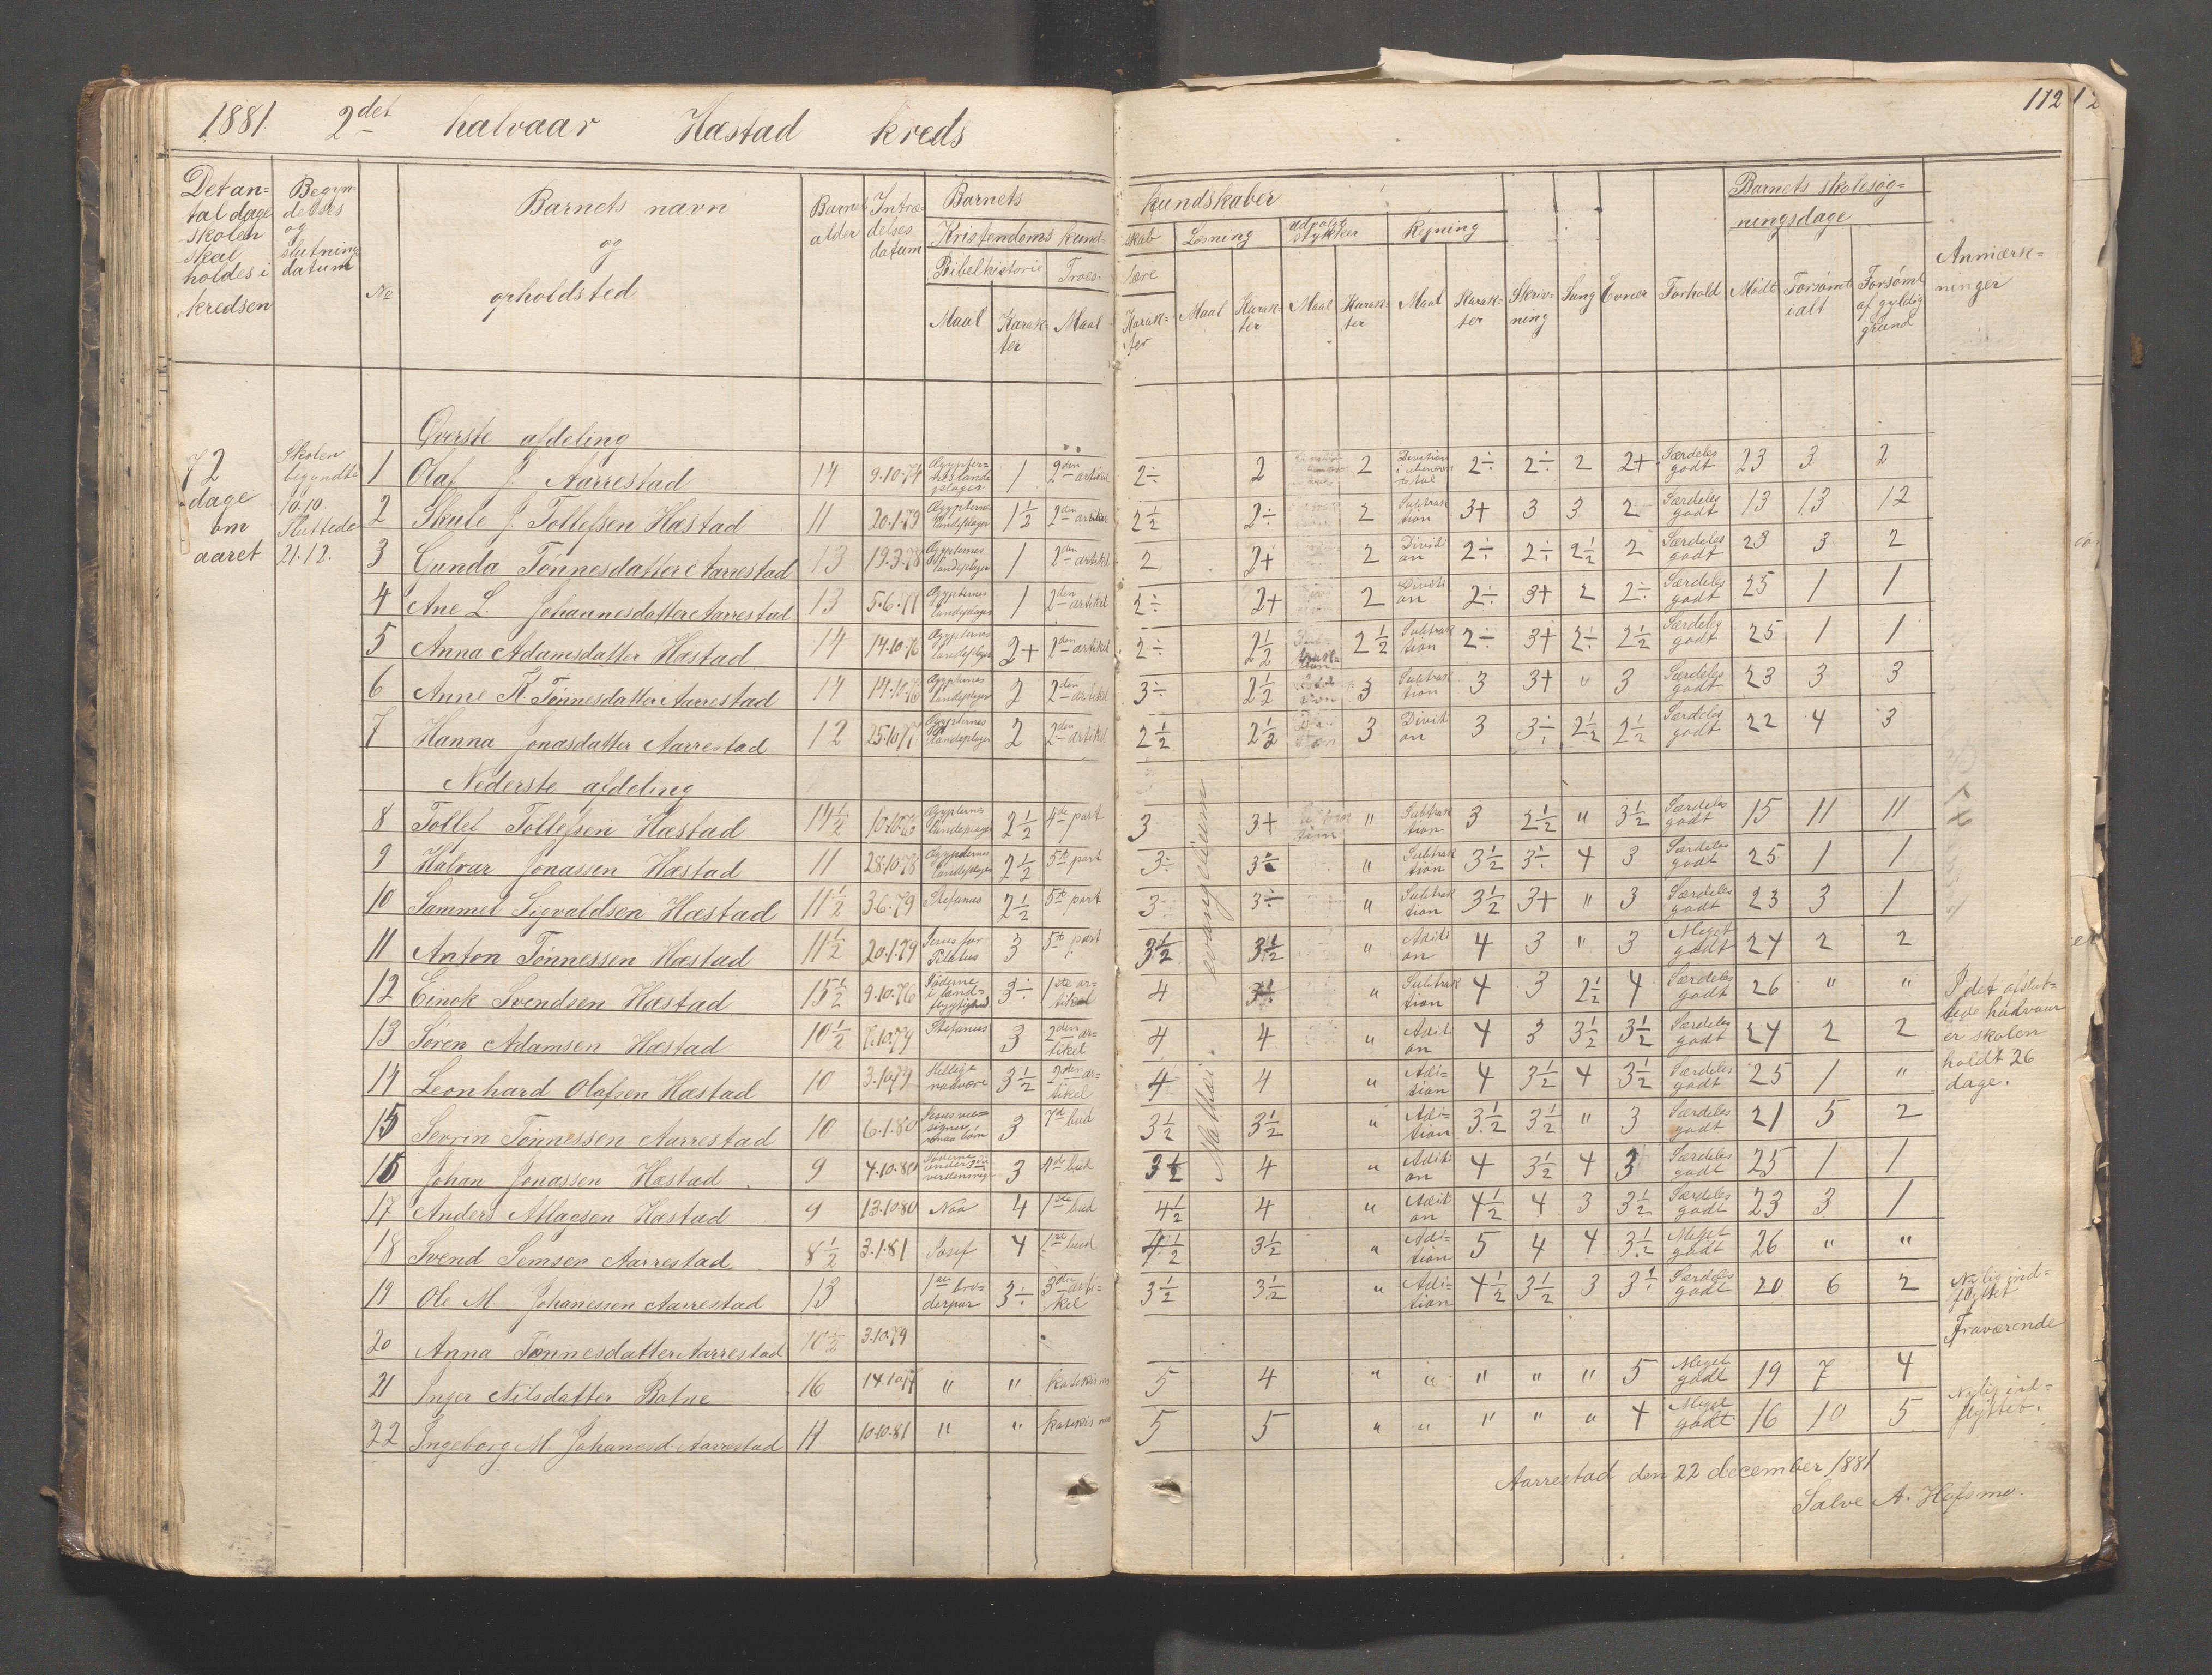 1881. 2det halvaar Hæstad kreds
112
Det an-
tal dage
skolen
skal
holdes i
kredsen
Begyn-
delses
og
slutnings
datum
No
Barnets navn
og
opholdsted
Barnets
alder
Intræ-
delses
datum
Barnets kundskaber
Kristendoms kund-
skab
Bibelhistorie
Troes-
lære
Maal
Karak-
ter
Maal
Karak-
ter
Læsning
Maal
Karak-
ter
udvalgte
stykker
Maal
Karak-
ter
Regning
Maal
Karak-
ter
Skriv-
ning
Sang
Evner
Forhold
Barnets skolesøg-
ningsdage
Mødt
Forsømt
ialt
Forsømt
af gyldig
grund
Anmærk-
ninger
72
dage
om
aaret
Skolen
begyndte
10.10.
Sluttede
21.12.
Øverste afdeling
1 Olaf J. Aarrestad 14 9.10.74 Ægypter-
nes lande
plager 1 2den artikel 2÷ 2 2 Division 2÷ 2÷ 2 2+ Særdeles godt 23 3 2
2 Skule J. Tollefsen Hæstad 11 20.1.79 Ægypternes landeplager 1½ 2den artikel 2½ 2÷ 2 Subtraktion 3+ 3 3 2 Særdeles godt 13 13 12
3 Gunda Tønnesdatter Aarrestad 13 19.3.78 Ægypternes landeplager 1 2den artikel 2 2+ 2 Division 2÷ 2÷ 2½ 2 Særdeles godt 23 3 2
4 Ane L. Johannesdatter Aarrestad 13 5.6.77 Ægypternes landeplager 1 2den artikel 2÷ 2+ 2 Division 2÷ 3+ 2 2÷ Særdeles godt 25 1 1
5 Anna Adamsdatter Hæstad 14 14.10.76 Ægypternes landeplager 2+ 2den artikel 2÷ 2½ 2½ Subtraktion 2÷ 3+ 2÷ 2½ Særdeles godt 25 1 1
6 Anne K. Tønnesdatter Aarrestad 14 14.10.76 Ægypternes landeplager 2 2den artikel 3÷ 2½ 3 Subtraktion 3 3+ " 3 Særdeles godt 23 3 3
7 Hanna Jonasdatter Aarrestad 12 25.10.77 Ægypternes landeplager 2 2den artikel 2½ 2½ 3 Division 3 3÷ 2½ 2½ Særdeles godt 22 4 3
Nederste afdeling
8 Tollef Tollefsen Hæstad 14½ 10.10.76 Ægypternes landeplager 2½ 4de part 3 3+ " Subtraktion 3 2½ " 3½ Særdeles godt 15 11 11
9 Halvar Jonassen Hæstad 11 28.10.78 Ægypternes landeplager 2½ 5te part 3÷ 3÷ " Subtraktion 3½ 3÷ 4 3 Særdeles godt 25 1 1
10 Sammel Sigvaldsen Hæstad 11½ 3.6.79 Stefanus 2½ 5te part 3 3÷ " Subtraktion 3½ 3+ " 3 Særdeles godt 23 3 1
11 Anton Tønnessen Hæstad 11½ 20.1.79 Jesus for Pilatus 3 5te part 3½ 3½ " Adition 4 3 " 3 Meget godt 24 2 2
12 Einok Svendsen Hæstad 15½ 9.10.76 Jøderne i land-
flygtighed 3÷ 1ste ar-
tikel 4 " Subtraktion 4 3 2½ 4 Særdeles godt 26 " "
13 Søren Adamsen Hæstad 10½ 7.10.79 Stefanus 3 2den ar-
tikel 4 4 " Adition 4 3 3½ 3½ Særdeles godt 24 2 2
14 Leonhard Olafsen Hæstad 10 3.10.79 Hellige nadvere 3½ 2den ar-
tikel 4 4 " Adi-
tion 4 3½ 4 3½ Særdeles godt 25 1 "
15 Sevrin Tønnessen Aarrestad 10 6.1.80 Jesus vel-
signer smaa børn 3 7de bud 3½ 3½ " Adi-
tion 3½ 3½ " 3 Særdeles godt 21 5 2
16 Johan Jonassen Hæstad 9 4.10.80 3 4de bud 3½ 4 " Adition 4 3½ 4 3 Særdeles godt 25 1 1
17 Anders Atlagsen Hæstad 9 13.10.80 Noa 4 1ste bud 4½ 4 " Adition 4½ 4 3 3½ Særdeles godt 23 3 1
18 Svend Semsen Aarrestad 8½ 3.1.81 Josef 4 1ste bud 4½ 3½ " Adi-
tion 5 4 4 3½ Meget godt 26 " "
19 Ole M. Johanessen Aarrestad 13 1ste bro-
derpar 3÷ 3die arti-
kel 3½ 3½ " Adi-
tion 4½ 3½ 3 3½ Særdeles godt 20 6 2
20 Anna Tønnesdatter Aarrestad 10½ 3.10.79
21 Inger Nilsdatter Botne 16 14.10.77 " " katekismus 5 4 " " " " " 5 Meget godt 19 7 4
22 Ingeborg M. Johanesd. Aarrestad 11 10.10.81 " " katekismus 5 5 " " " " " 4 Meget godt 16 10 5
Mathæi evangelium
I det afslut-
tede halvaar
er skolen
holdt 26
dage.
Nylig ind-
flyttet
Fraværende
Nylig ind-
flyttet.
Aarrestad den 22 december 1881
Salve A. Hafsmo.